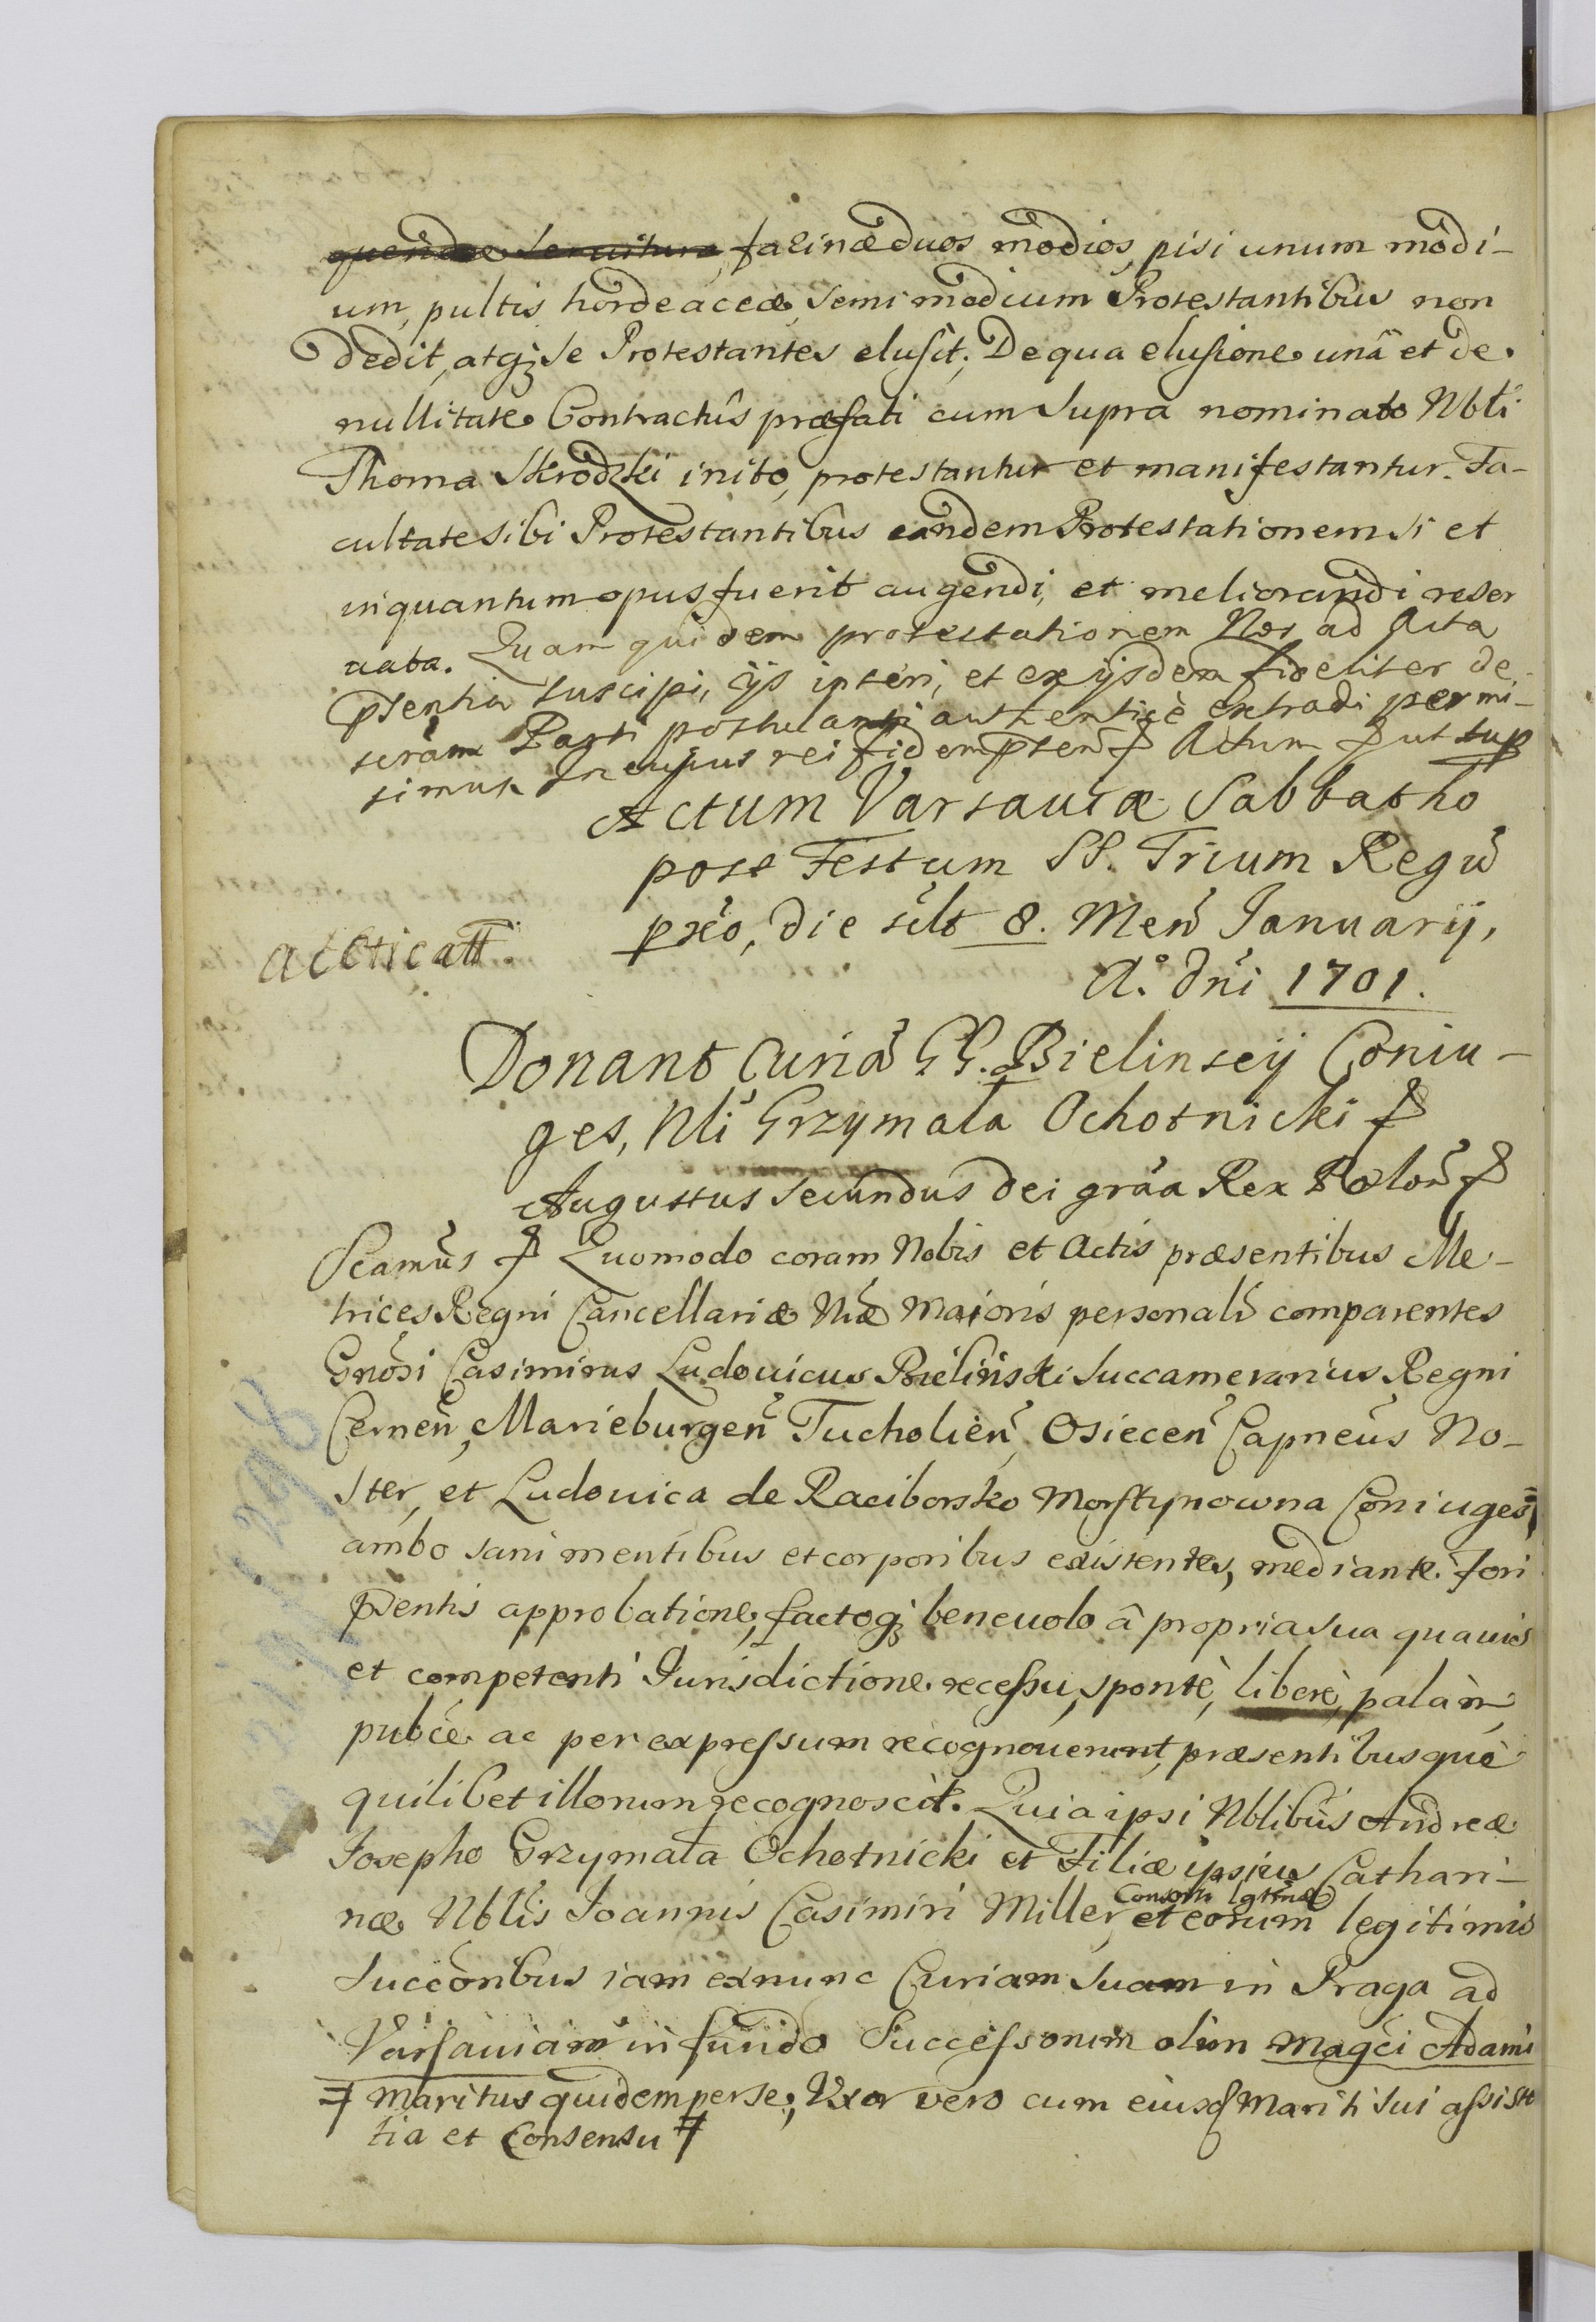 farinæ duos modios, pisi unum modi-
um, pultis hordeaceæ, semi modium Protestantibus non
dedit, atqȝ se Protestantes elusit; De qua elusione unâ et de
nullitate Contractûs præfati cum supra nominato Nbli
Thoma Skrodzki inito, protestantur et manifestantur. Fa-
cultate sibi Protestantibus eandem Protestationem si et
inquantum opus fuerit augendi, et meliorandi reser
uata. Quam quidem protestationem Nos ad Acta
pñsentia suscipi, ijs inseri, et ex ijsdem fideliter de-
scriptam Parti postulanti authenticè extradi permi-
simus In cujus rei fidem pñsen ꝭ Actum ꝭ ut sup
Actum Varsauiæ Sabbatho
post Festum SS. Trium Regũ
pxo, die silt 8. Mens̃ Ianuarij,
A.º dñi 1701.
acticatt.
Donant Curiã GG. Bielinscij Coniu-
ges, Nli Grzymała Ochotnicki ꝭ
Augustus Secundus Dei grãa Rex Polon̄ ꝭ
Scamus ꝭ Quomodo coram Nobis et Actis præsentibus Me-
trices Regni Cancellariæ Nræ Maioris personalr̃ comparentes
Gnosi Casimirus Ludouicus Bieliński Succamerarius Regni
Cernen̄, Marieburgen̄ Tucholien̄, Osiecen̄ Capneus No-
ster, et Ludouica de Raciborsko Morstynowna Coniuges
ambo sani mentibus et corporibus existentes, mediante fori
pñsentis approbatione, factoqȝ beneuolo â propria sua quauis
et competenti Iurisdictione recessu, spontè, liberè, palàm,
pubcè ac per expressum recognouerunt, præsentibusquè
quilibet illorum recognoscit. Quia ipsi Nblibus Andreæ
Iosepho Grzymała Ochotnicki et Filiæ ipsius Cathari-
Consorti lgttmæ
næ Nblis Ioannis Casimiri Miller, et eorum legitimis
Succonbus iam exnunc Curiam suam in Praga ad
Varsauiam in fundo Successorum olim Magci Adami
ǂ Maritus quidem per se, Vxor vero cum eiusd Mariti sui assist
tia et Consensu ǂ